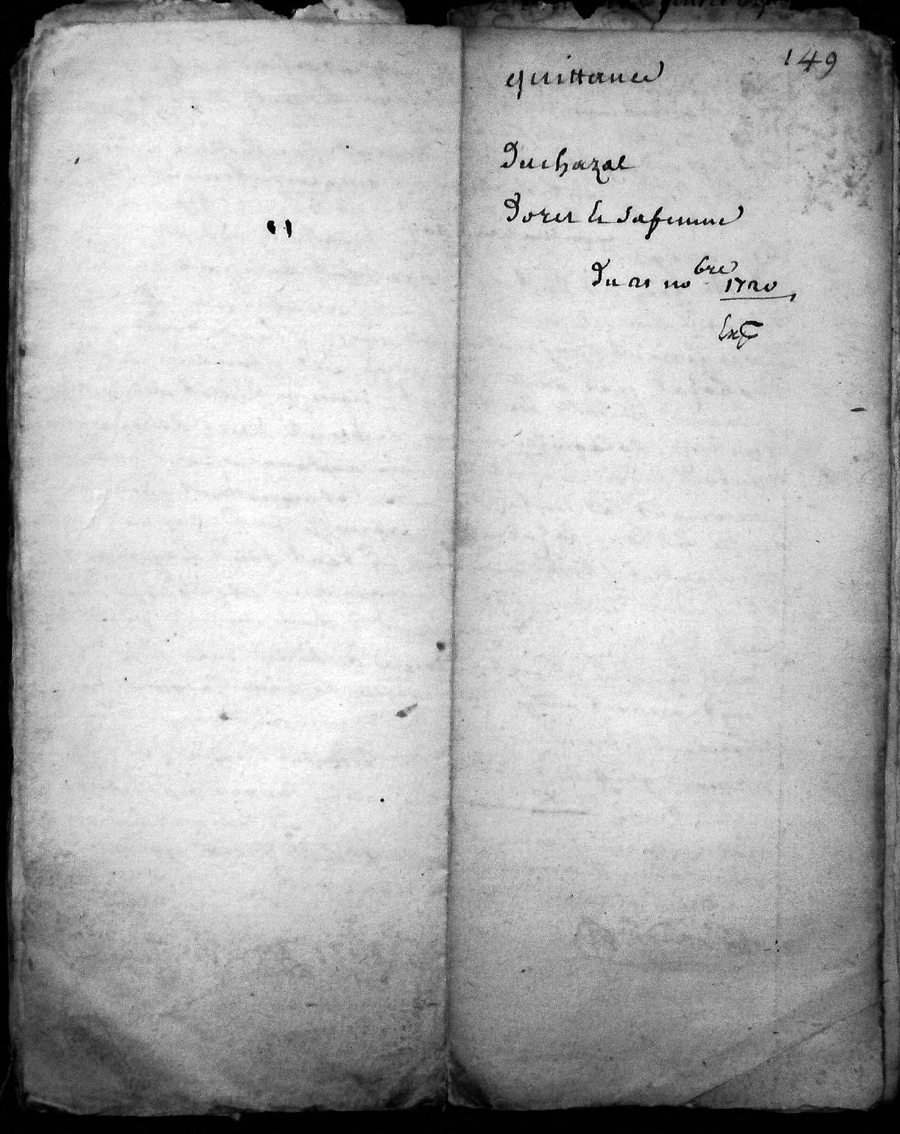 149
quittance
Duchazal
Doret & sa femme
Du 21 nobre 1720
Ext